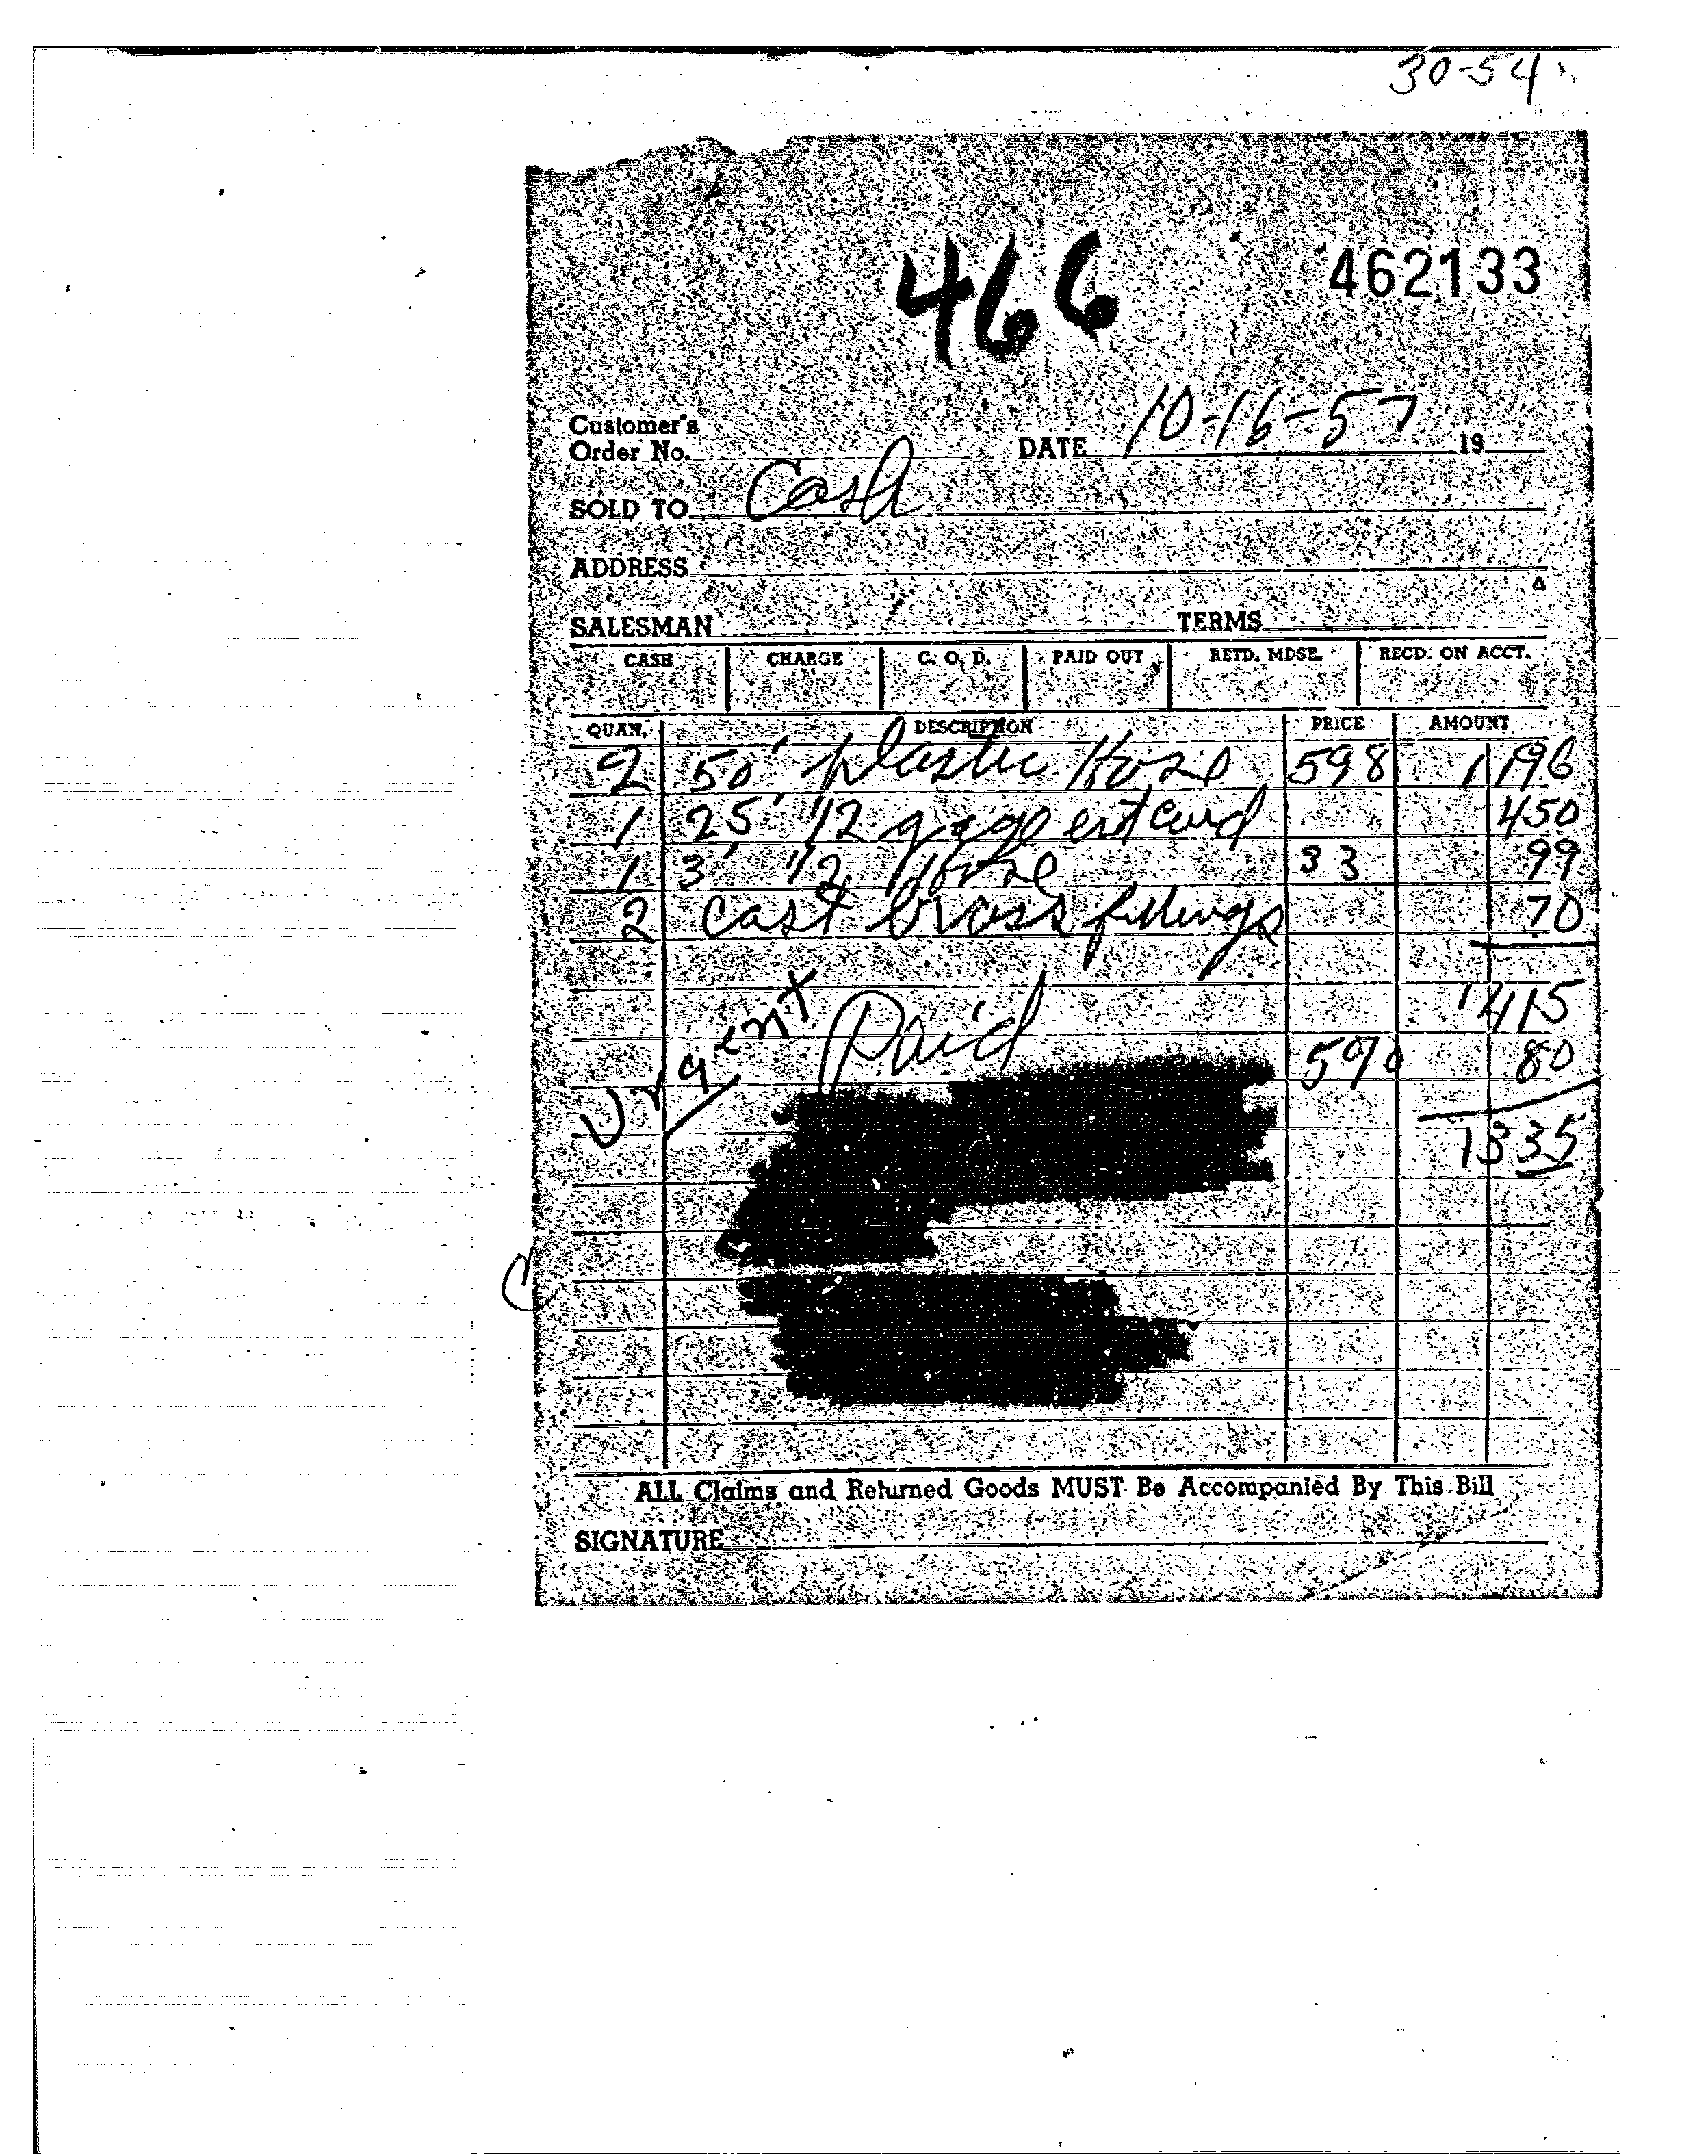 30-54
466 462133
Customer's
Order No. DATE 10-16-57 19
SOLD TO Cash
ADDRESS
SALESMAN TERMS
CASH CHARGE C. O. D. PAID OUT RETD. MDSE. RECD. ON ACCT.
QUAN. DESCRIPTION PRICE AMOUNT
2 50' plastic Hose 598 1196
1 25' 12 gage ext cord 450
1 3' 1/2 Hose 33 99
2 cast brass fittings 70
1415
Urgent Paid
5% 80
1335
ALL Claims and Returned Goods MUST Be Accompanied By This Bill
SIGNATURE